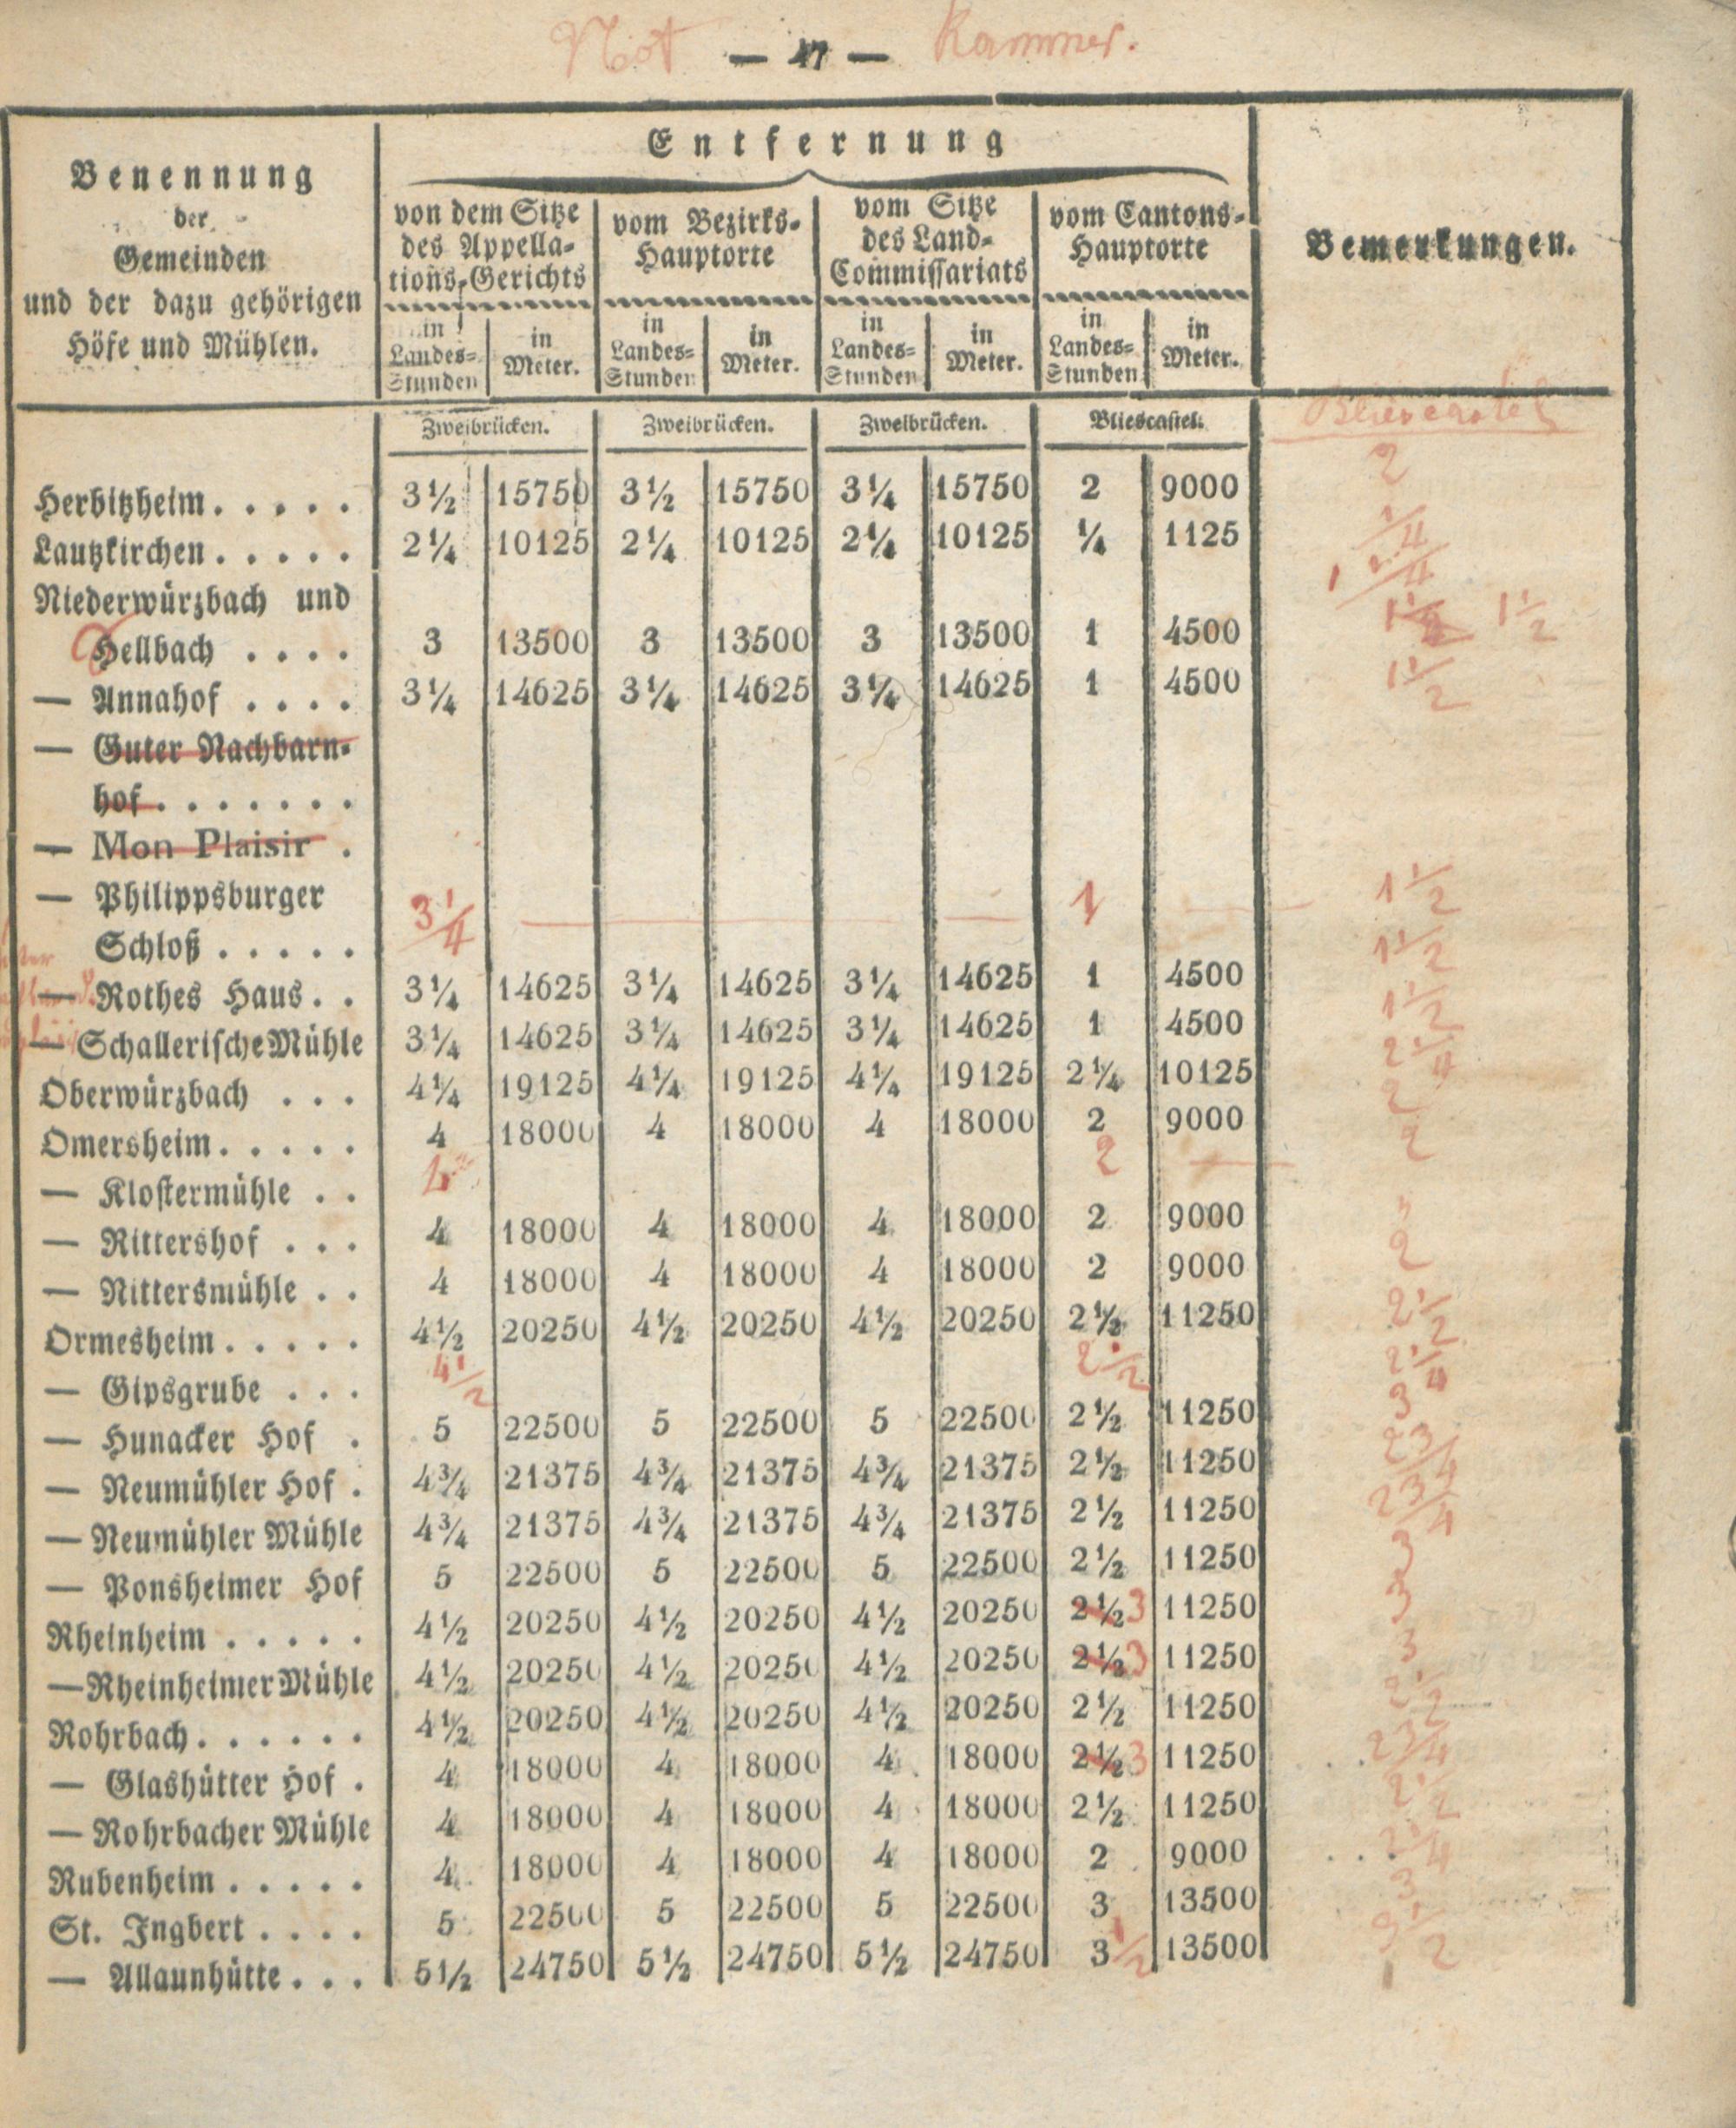 Not — 47 — Kammer.
Entfernung
Benennung
der
Gemeinden
und der dazu gehörigen
Höfe und Mühlen.
von dem Sitze
des Appella-
tions-Gerichts
vom Bezirks-
Hauptorte
vom Sitze
des Land-
Commissariats
vom Cantons-
Hauptorte
Bemerkungen.
in Landes-Stunden in Meter. in Landes-Stunden in Meter. in Landes-Stunden in Meter. in Landes-Stunden in Meter.
Zweibrücken. Zweibrücken. Zweibrücken. Bliescastel. Bliescastel
Herbitzheim..... 3½ 15750 3½ 15750 3¼ 15750 2 9000 2
Lautzkirchen..... 2¼ 10125 2¼ 10125 2¼ 10125 ¼ 1125 1/4
Niederwürzbach und
Hellbach .... 3 13500 3 13500 3 13500 1 4500 1½
— Annahof .... 3¼ 14625 3¼ 14625 3¼ 14625 1 4500 1½
— Guter Nachbarn-
hof.......
— Mon Plaisir .
— Philippsburger
Schloß..... 3¼ — — 1 — 1½
— Rothes Haus.. 3¼ 14625 3¼ 14625 3¼ 14625 1 4500 1½
— Schallerische Mühle 3¼ 14625 3¼ 14625 3¼ 14625 1 4500 1½
Oberwürzbach ... 4¼ 19125 4¼ 19125 4¼ 19125 2¼ 10125 2¼
Omersheim..... 4 18000 4 18000 4 18000 2 9000 2
— Klostermühle .. 4 2 — 2
— Rittershof ... 4 18000 4 18000 4 18000 2 9000 "
— Rittersmühle .. 4 18000 4 18000 4 18000 2 9000 2
Ormesheim..... 4½ 20250 4½ 20250 4½ 20250 2½ 11250 2½
— Gipsgrube ... 4½ 2½ 2¼
— Hunacker Hof . 5 22500 5 22500 5 22500 2½ 11250 3
— Neumühler Hof . 4¾ 21375 4¾ 21375 4¾ 21375 2½ 11250 2¾
— Neumühler Mühle 4¾ 21375 4¾ 21375 4¾ 21375 2½ 11250 2¾
— Ponsheimer Hof 5 22500 5 22500 5 22500 2½ 11250 3
Rheinheim ..... 4½ 20250 4½ 20250 4½ 20250 2½ 3 11250 3
— Rheinheimer Mühle 4½ 20250 4½ 20250 4½ 20250 2½ 3 11250 3
Rohrbach...... 4½ 20250 4½ 20250 4½ 20250 2½ 11250 2½
— Glashütter Hof . 4 18000 4 18000 4 18000 2½ 3 11250 2¾
— Rohrbacher Mühle 4 18000 4 18000 4 18000 2½ 11250 2½
Rubenheim..... 4 18000 4 18000 4 18000 2 9000 2¼
St. Ingbert.... 5 22500 5 22500 5 22500 3 13500 3
— Allaunhütte... 5½ 24750 5½ 24750 5½ 24750 3 ½ 13500 3½